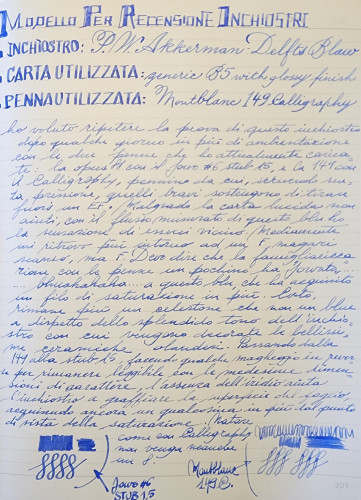 Modello Per Recensione Inchiostri
INCHIOSTRO: P.W. Akkerman - Delfts Blauw
CARTA UTILIZZATA: generic B5 with glossy finish
PENNA UTILIZZATA: Montblanc 149 Calligraphy
ho voluto ripetere la prova di questo inchiostro
dopo qualche giorno in più di ambientazione
con le due penne che ho attualmente carica-
te: la opus 14 con il Jowo #6 stub 1.5, e la 149 con
il Calligraphy, pennino la cui, secondo sen-
za pressione, quelli bravi sostengono di tirare
fuori un EF. Malgrado la carta lucida non
aiuti, con il flusso misurato di questo blu ho
la sensazione di esserci vicino. Mediamente
mi ritrovo più intorno ad un F, magari
scarso, ma F. Devo dire che la famigliarizza
zion con le penne un pochino ha Jowato...
... bhuahahaha... a questo blu, che ha acquisito
un filo di saturazione in più. Certo,
rimane più un celestone che non un blu
a dispetto dello splendido tono dell'inchio-
stro con cui vengono decorate le bellissi-
me ceramiche olandesi. Passando dalla
149 allo stub 1.5, facendo qualche magheggio in curva
per rimanere leggibile con le medesime dimen-
sioni di carattere, l'assenza dell'iridio aiuta
l'inchiostro a graffiare la superficie del foglio,
acquisendo ancora un qualcosina in più dal punto
di vista della saturazione.
come con Calligraphy
non venga neanche
un 8
Jowo #6
STUB 1,5
Montblanc
149 C.
201